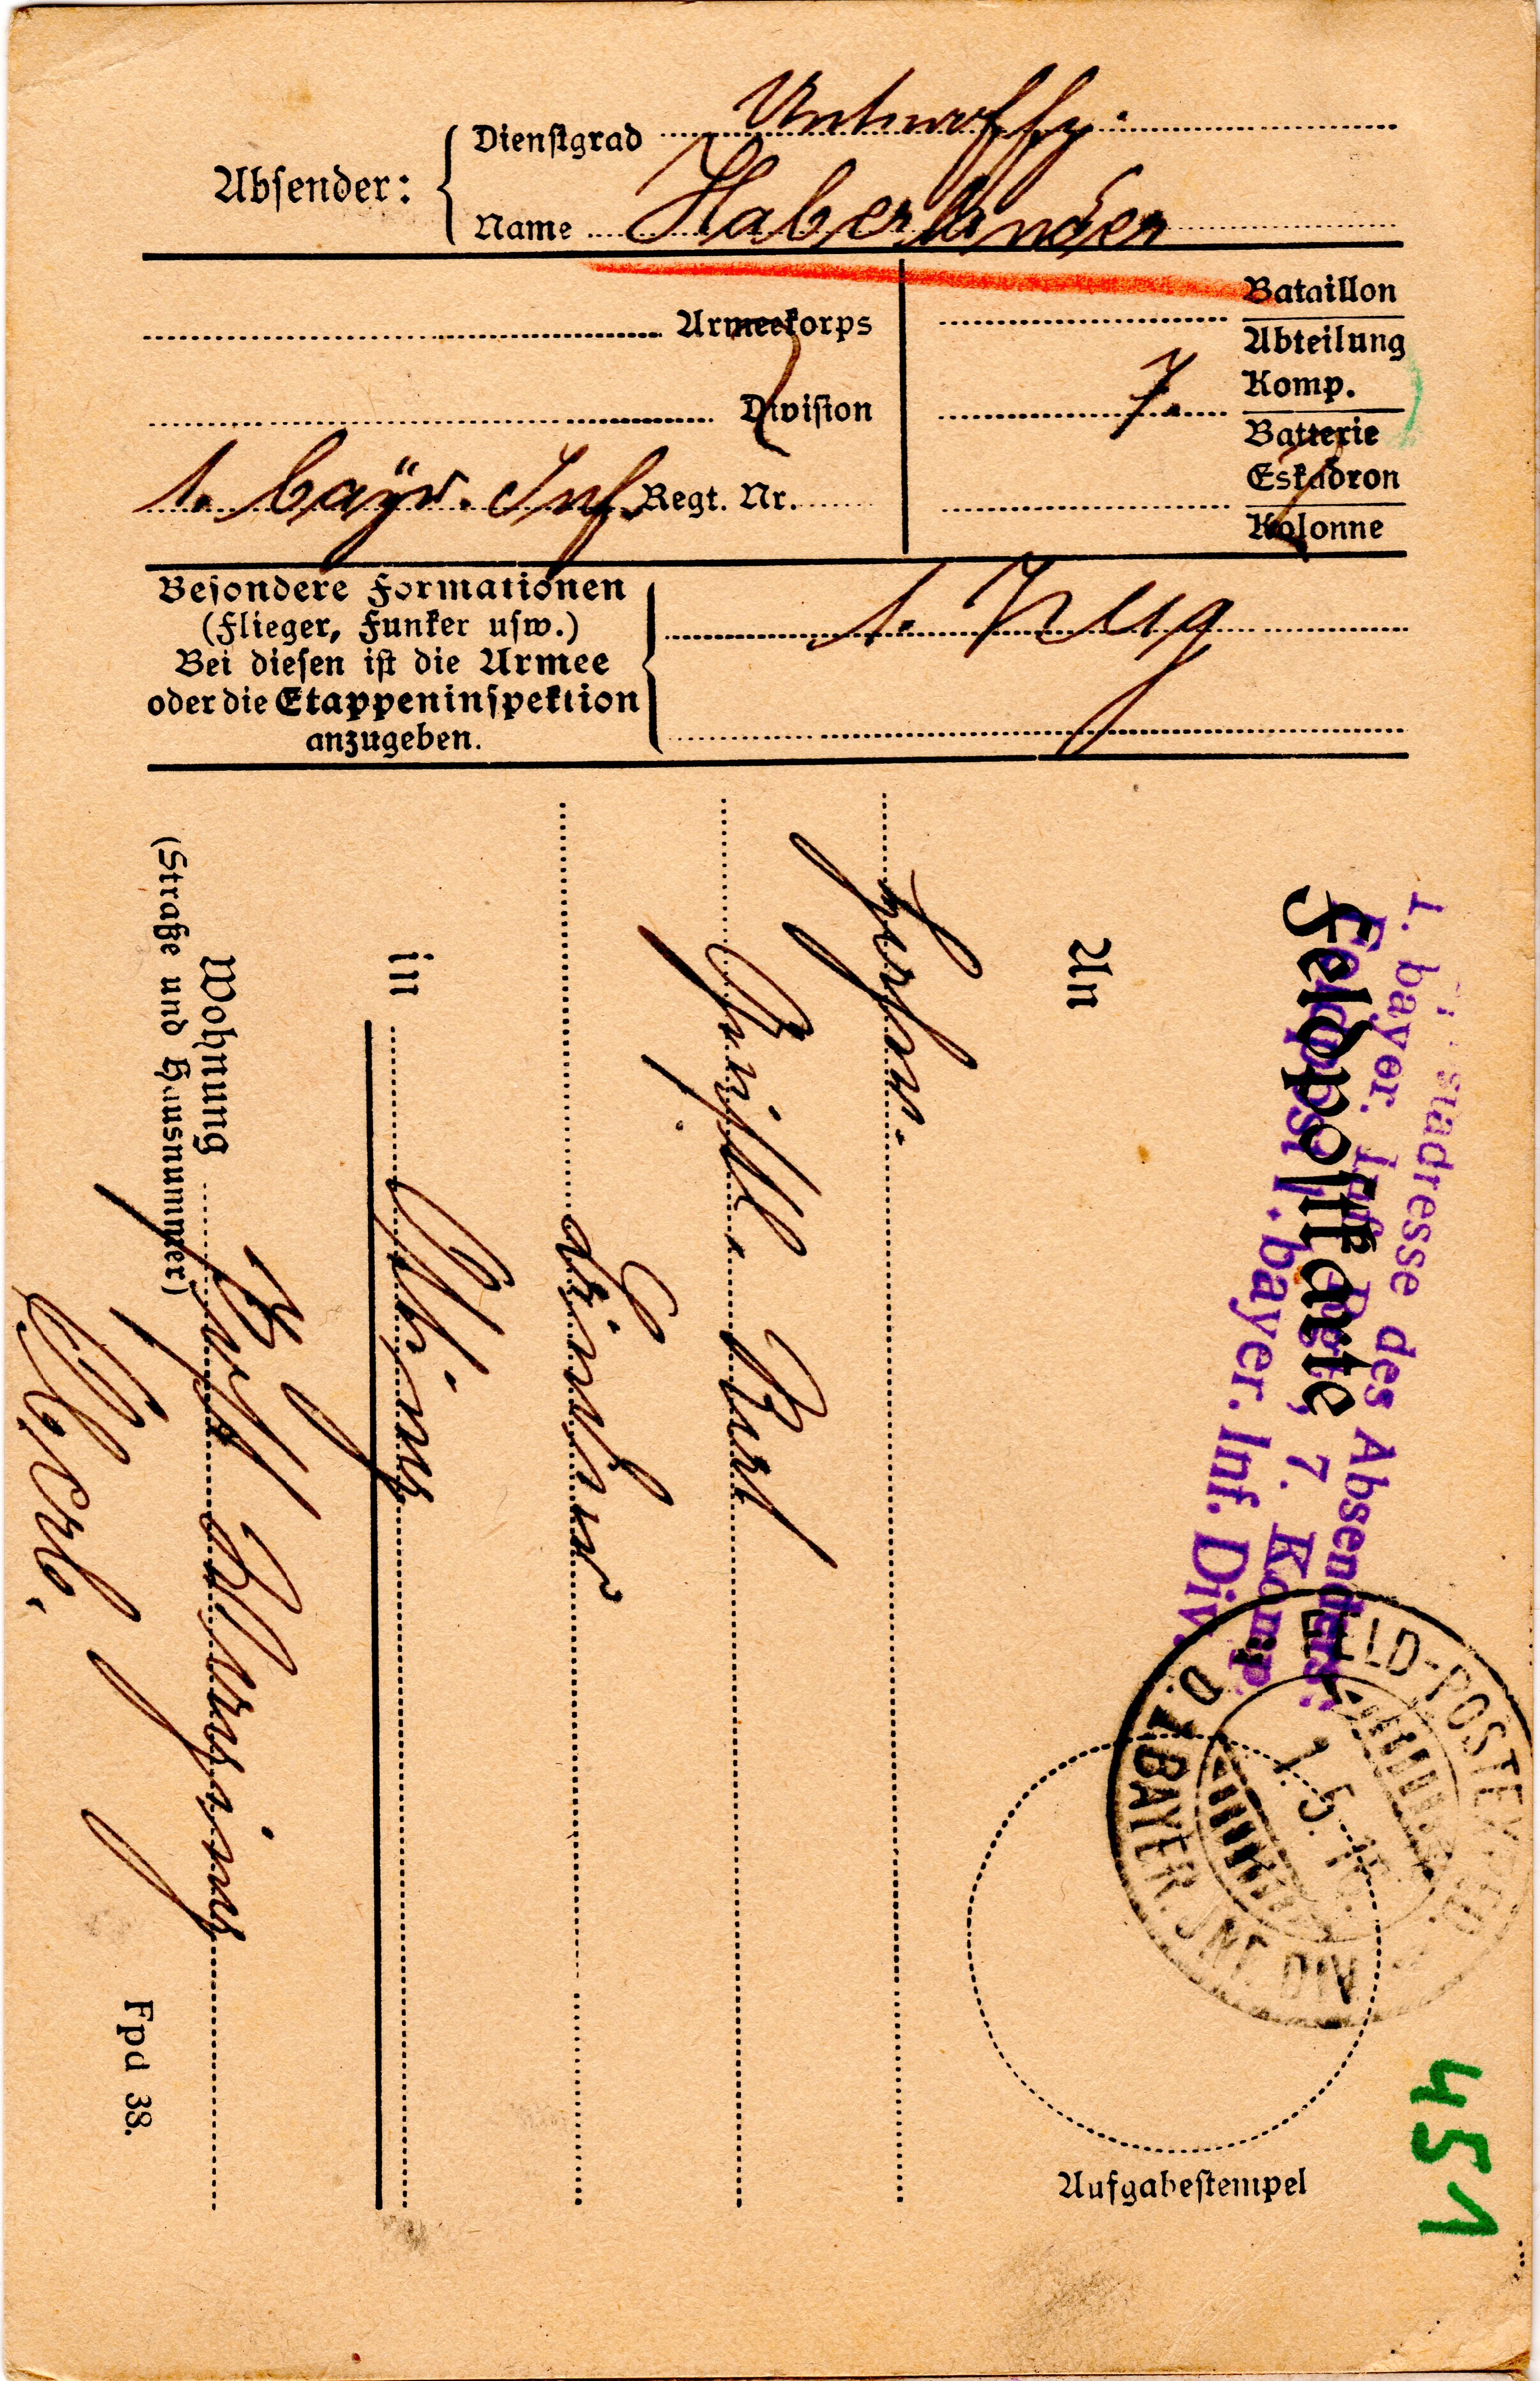 Absender:
Dienstgrad Unteroffz.
Name Haberländer
Armeekorps
Division
1. bayr. Inf. Regt. Nr.
Bataillon
Abteilung
7. Komp.
Batterie
Eskadron
Kolonne
Besondere Formationen
(Flieger, Funker usw.)
Bei diesen ist die Armee
oder die Etappeninspektion
anzugeben.
1. Zug
Feldpostkarte
Feldpostadresse des Absenders:
1. bayer. Inf. Regt., 7. Komp.
Feldpost 1. bayer. Inf. Div.
FELD-POSTEXPED.
D. 1 BAYER. INF. DIV
1. 5. 16.
Aufgabestempel
451
An
Herrn
in
Wohnung
(Straße und Hausnummer)
Post
Fpd 38.